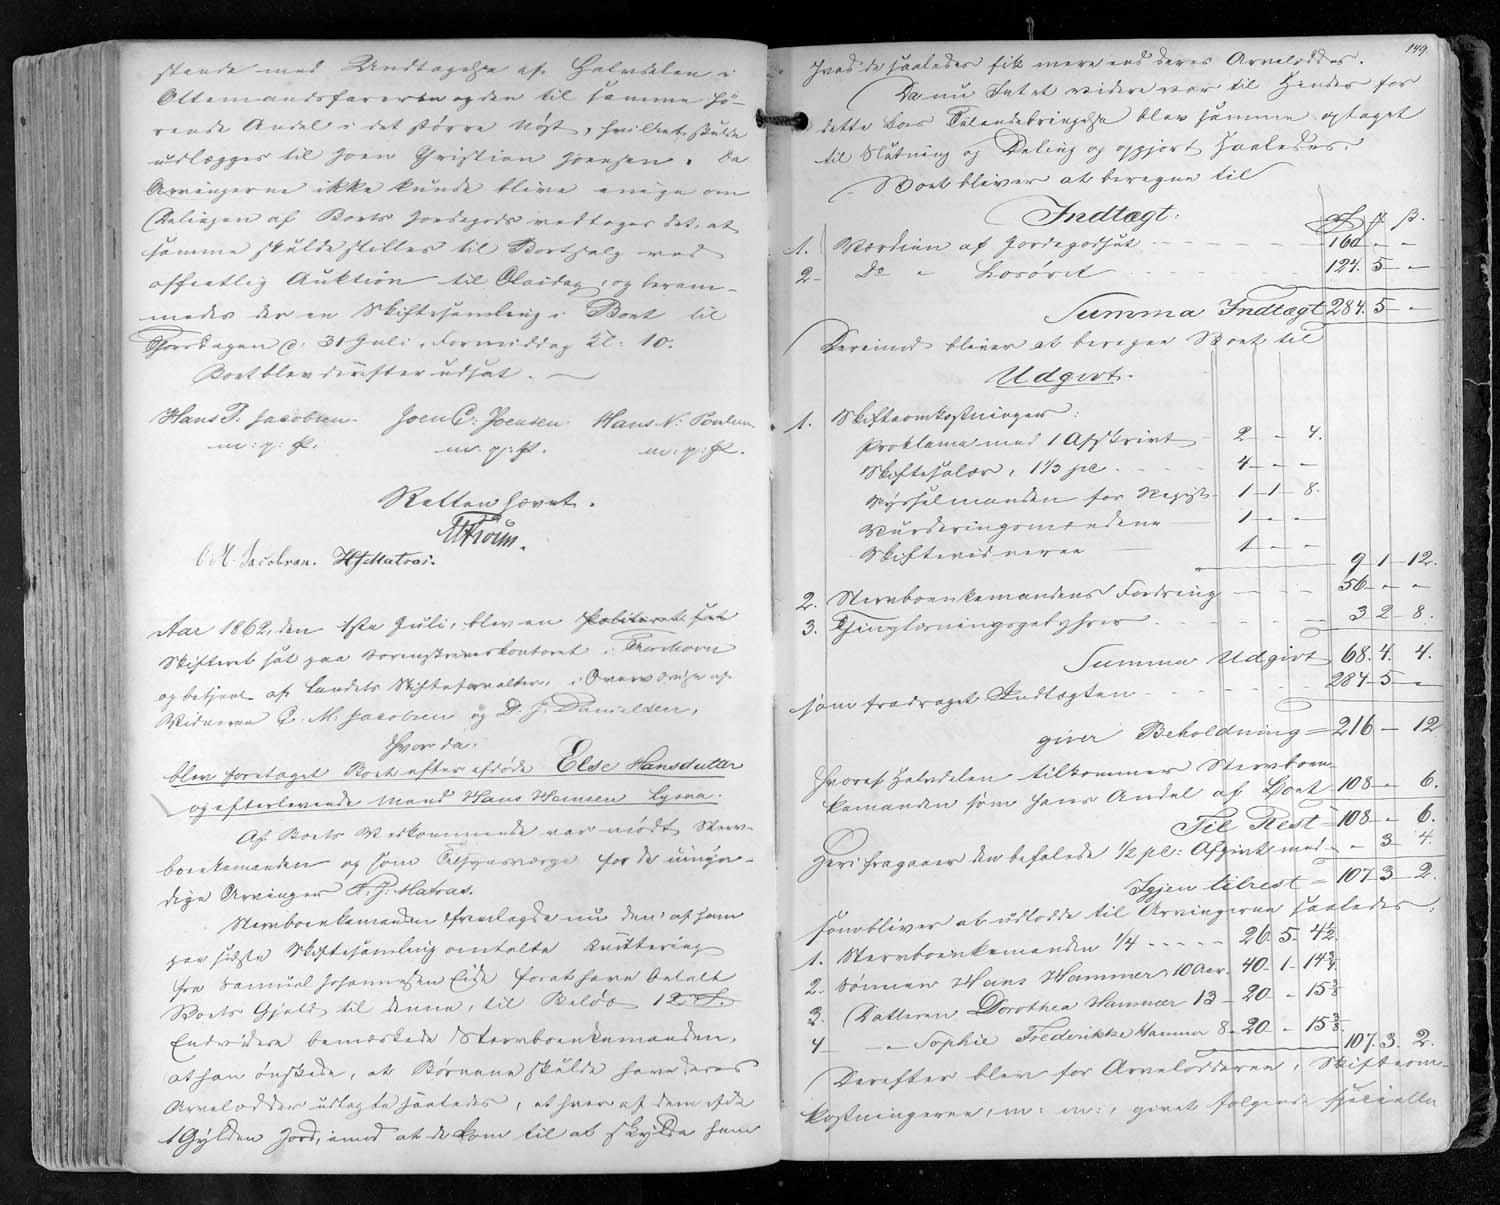 stende med Undtagelse af Halvdelen i
Ottemandsfareren og den til samme hö-
rende Andel i det större Nöst, hvilket skulde
udlægges til Joen Christian Joensen. Da
Arvingerne ikke kunde blive enige om
Delingen af Boets Jordegods vedtoges det, at
samme skulde stilles til Bortsalg ved
offentlig Auktion til Olaidag, og beram-
medes der en Skiftesamling i Boet til
Thorsdagen d. 31 Juli, Formiddag Kl: 10.
Boet blev derefter udsat.
Hans P. Jacobsen. Joen C: Joensen Hans N: Poulsen
m: p: P. m: p: P. m: p: P.
Retten hævet.
C M. Jacobsen. HJMatras.
Aar 1862, den 1ste Juli, blev en Politiret sat
Skifteret sat paa Sorenskriverkontoret i Thorshavn
og betjent af Landets Skifteforvalter, i Overværelse af
Vidnerne C. M. Jacobsen og D. J. Danielsen,
hvor da:
blev foretaget Boet efter afdöde Else Hansdatter
og efterlevende Mand Hans Hansen
Af Boets Vedkommende var mödt Sterv-
boenkemanden og som Tilsynsværge for de umyn-
dige Arvinger H. J. Matras.
Stervboenkemanden fremlagde nu den, af ham
paa sidste Skiftesamling omtalte Quittering
fra Samuel Johannesen Eide for at have betalt
Boets Gjeld til denne, til Belöb 12
Endvidere bemærkede Stervboenkemanden,
at han önskede, at Börnene skulde have deres
Arvelodder udlagte saaledes, at hver af dem fik
1 Gylden Jord, imod at de kom til at skylde ham
149.
hvad de saaledes fik mere end deres Arvelodder.
Da nu Intet videre var til Hinder for
dette Boes Tilendebringelse blev samme optaget
til Slutning og Deling og opgjort saaledes:
Boet bliver at beregne til
Indtægt:
1. Værdien af Jordegodset 160 - -
2 - Do " Losöret 124. 5 - -
Summa Indtægt 284. 5 -
Derimod bliver at beregne Boet til
Udgivt.
1. Skifteomkostninger:
Proklama med 1 Afskrivt 2 - - 4.
Skiftesalær, 1 1/3 pC. 4 - - -
Sysselmanden for Regist. 1 - 1 - 8.
Vurderingsmændene 1 - - -
Skiftevidnerne 1 - - -
9 1 - 12.
2. Stervboenkemandens Fordring 56 - - -
3. Thinglæsningsgebyhrer 3 2 - 8.
Summa Udgivt 68. 4. 4.
som fradraget Indtægten 284. 5 -
giver Beholdning = 216 - 12
hvoraf Halvdelen tilkommer Stervboen-
kemanden som hans Andel af Boet 108 - 6.
Til Rest = 108 - 6.
Heri fragaaer den befalede 1/2 pC: Afgivt med - - 3 4.
Igjen tilrest = 107 3 - 2.
som bliver at udlodde til Arvingerne saaledes:
1. Stervboenkemanden 1/4 - - - - - 26. 5. 4 1/2.
2. Sönnen Hans Hammer, 10 Aar 40 - 1 - 14 3/4
3. Datteren Dorothea Hammer 13 - 20 - 15 3/8
4 - - " - Sophie Frederikke Hammer 8 - 20 - 15 3/8. 107. 3. 2.
Derefter blev for Arvelodderne, Skifteom-
kostningerne, m: m:, givet fölgende specielle